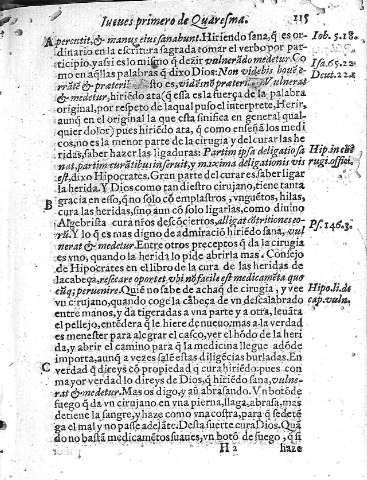 Iueues primero de Quaresma. 115
A percutit, & manus eius sanabunt. Hiriendo sana, q̃ es or-
dinario en la escritura sagrada tomar el verbo por par-
ticipio, y assi es lo mismo q̃ dezir vulnerādo medetur. Co
mo en aq̃llas palabras q̃ dixo Dios: Non videbis bouē
& præteri
& medetur, hiriēdo ata (q̃ essa es la fuerça de la palabra
original, por respeto de la qual puso el interprete, Herir,
aunq̃ en el original la que esta sinifica en general qual-
quier dolor) pues hiriēdo ata, q̃ como enseñā los medi
cos, no es la menor parte de la cirugia y del curar las he
ridas, saber hazer las ligaduras: Partim ipsa deligatio sa
nat, partim curātibus inseruit, y maxima deligationis vis
est, dixo Hipocrates. Gran parte del curar es, saber ligar
la herida. Y Dios como tan diestro cirujano, tiene tanta
B gracia en esso, q̃ no solo cō emplastros, vnguētos, hilas,
cura las heridas, sino aun cō solo ligarlas, como diuino
Algebrista cura ñros descōciertos, alligat cōtritiones eo-
rū. Y lo q̃ es mas digno de admiraciō hiriēdo sana, vul
nerat & medetur. Entre otros preceptos q̃ da la cirugia
es vno, quando la herida lo pide abrirla mas. Consejo
de Hipocrates en el libro de la cura de las heridas de
la cabeça, resecare oportet, vbi nō facile est medicamēta quo
euq̃; peruenire. Quē no sabe de achaq̃ de cirugia, y vee
vn cirujano, quando coge la cabeça de vn descalabrado
entre manos, y da tigeradas a vna parte y a otra, leuāta
el pellejo, entēdera q̃ le hiere de nueuo: mas a la verdad
es menester para alegrar el casco, ver el hōdo de la heri
da, y abrir el camino para q̃ la medicina llegue adōde
importa, aunq̃ a vezes salē estas diligēcias burladas. En
C verdad q̃ direys cō propiedad q̃ cura hiriēdo: pues con
mayor verdad lo direys de Dios, q̃ hiriēdo sana, vulne-
rat & medetur. Mas os digo, y aū abrasando. Vn botō de
fuego q̃ da vn cirujano en vna pierna, llaga, abrasa, mas
detiene la sangre, y haze como vna costra, para q̃ se detē
ga el mal y no passe adelāte. Desta suerte cura Dios. Quā
do no bastā medicamētos suaues, vn botō de fuego, q̃ si
H 2 haze
Iob. 5. 18.
Isa. 65. 22.
Deut. 22.
Hip. in
rugi. offici.
Ps. 146. 3.
Hipo. li. de
cap. vuln.